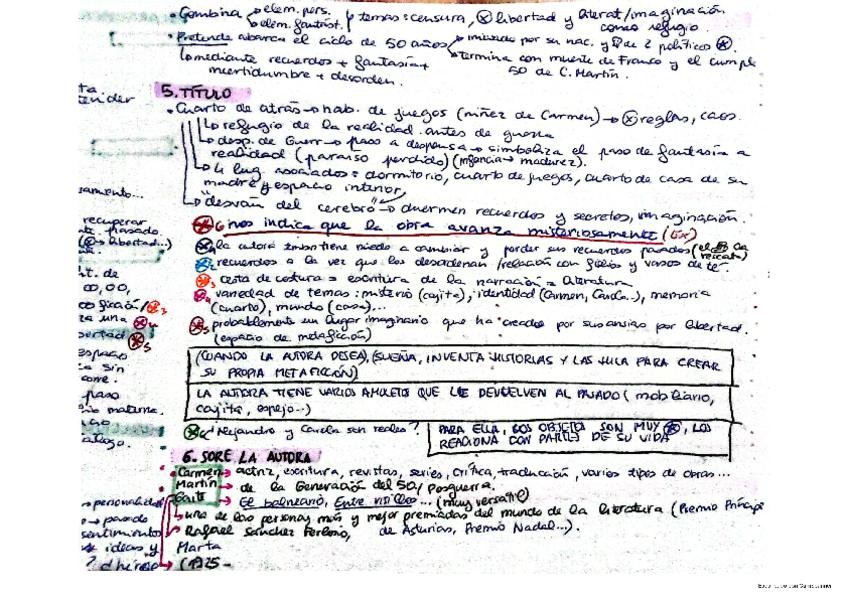 • Combina elem. pers. temas: censura, libertad y literat/imaginación
elem. fantást. como refugio.
• Pretende abarca el ciclo de 50 años por su nac. y de 2 políticos
mediante recuerdos + fantasía + Termina con muerte de Franco y el cumple
incertidumbre + desorden. 50 de C. Martín.
5. TÍTULO
• Cuarto de atrás → hab. de juegos (niñez de Carmen) → reglas, caos.
refugio de la realidad antes de guerra
desp. de Guerr → paso a despensa → simboliza el paso de fantasía a
realidad (paraíso perdido) (infancia → madurez).
4 lug. asociados = dormitorio, cuarto de juegos, cuarto de casa de su
madre y espacio interior,
"desván del cerebro" → duermen recuerdos y secretos, imaginación.
nos indica que la obra avanza misteriosamente
la autora tiene miedo a cambiar y perder sus recuerdos pasados
recuerdos a la vez que los desordenan /relación con folios y vasos de té.
cesta de costura = escritura de la narración = literatura
variedad de temas: misterio (cajita), identidad (Carmen, Carola..), memoria
(cuarto), mundo (casa)...
probablemente un lugar imaginario que ha creado por su ansia por libertad.
(espacio de metaficción)
(CUANDO LA AUTORA DESEA), (SUEÑA, INVENTA HISTORIAS Y LAS HILA PARA CREAR
SU PROPIA METAFICCIÓN)
LA AUTORA TIENE VARIOS AMULETOS QUE LE DEVUELVEN AL PASADO (mobiliario,
cajita, espejo..)
¿Alejandro y Carola son reales?
PARA ELLA, LOS OBJETOS SON MUY , LOS
RELACIONA CON PARTES DE SU VIDA
6. SORE LA AUTORA
Carmen → actriz, escritura, revistas, series, crítica, traducción, varios tipos de obras...
Martín → de la Generación del 50/ posguerra.
Gaite → El balneario, Entre visillos... (muy versátil)
una de las personas más y mejor premiadas del mundo de la literatura (Premio Príncipe
Rafael Sánchez Ferlosio, de Asturias, Premio Nadal...).
Marta
(1925 -
tender
samiento...
recuperar
pasado.
libertad...)
ficción/
za una
espacio
sin
paso
materna.
personalidad
→ pasado
sentimientos
ideas y